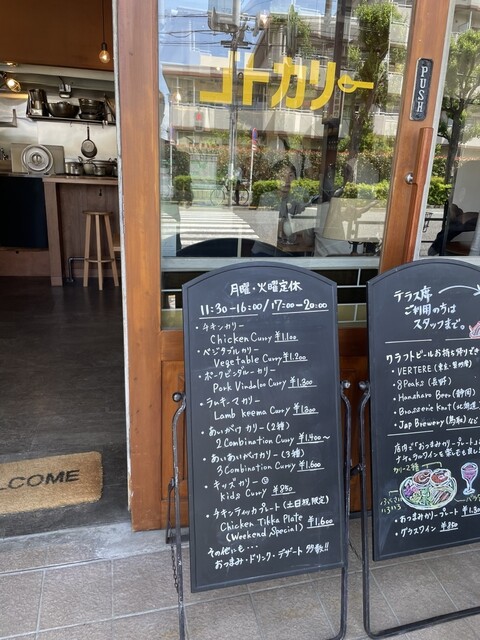 ゴトカリー
PUSH
月曜・火曜定休
11:30-16:00/17:00-20:00
・チキンカリー
Chicken Curry ¥1.100
・ベジタブルカリー
Vegetable Curry ¥1.200
・ポークビンダルーカリー
Pork Vindaloo Curry ¥1.300
・ラムキーマカリー
Lamb keema Curry ¥1300
・あいがけカリー(2種)
2 Combination Curry ¥1.400〜
・あいあいがけカリー(3種)
3 Combination Curry ¥1.600
・キッズカリー
Kids Curry ¥850
・チキンティッカプレート(土日祝限定)
Chicken Tikka Plate ¥1.600
(Weekend Special)
その他にも・・・
おつまみ・ドリンク・デザート多数!!
テラス席
ご利用の方は
スタッフまで。
クラフトビールお持ち帰りでき
・VERTERE(東京・奥多摩)
・8Peaks(長野)
・Hanzharo Beer(静岡)
・Brasserie Knot(北海道)
・Jap Brewery(鳥取)など
店内で「おつまみカリープレート」と
ナチュラルワインを楽しむも良し
カリー2種
・おつまみカリープレート ¥1.80
・グラスワイン ¥850
LCOME